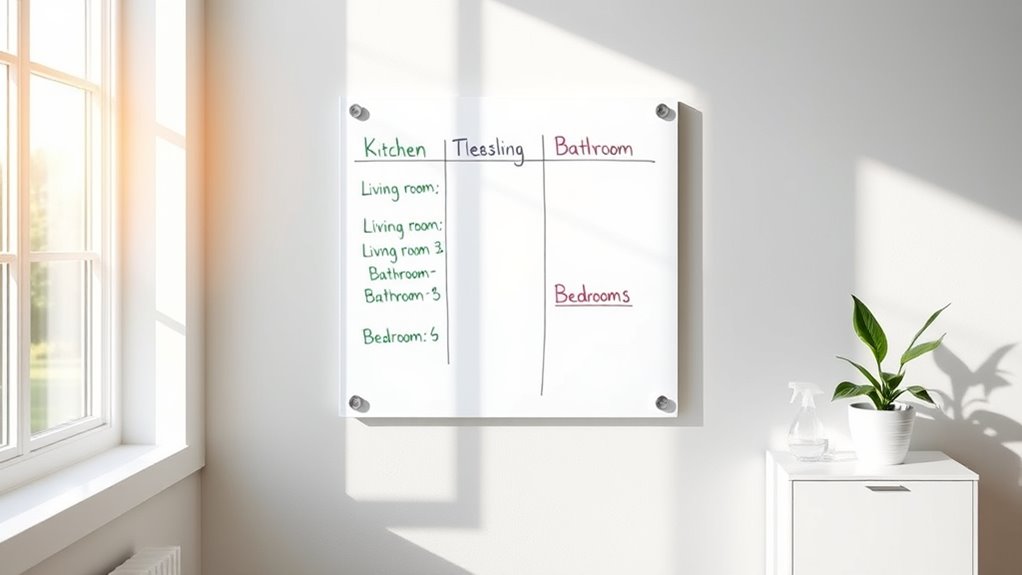 Kitchen Tleesling Batlroom
Living room:
Living room:
Livng room 3
Bathroom-
Bathroom-3
Bedrooms
Bedroom: 5